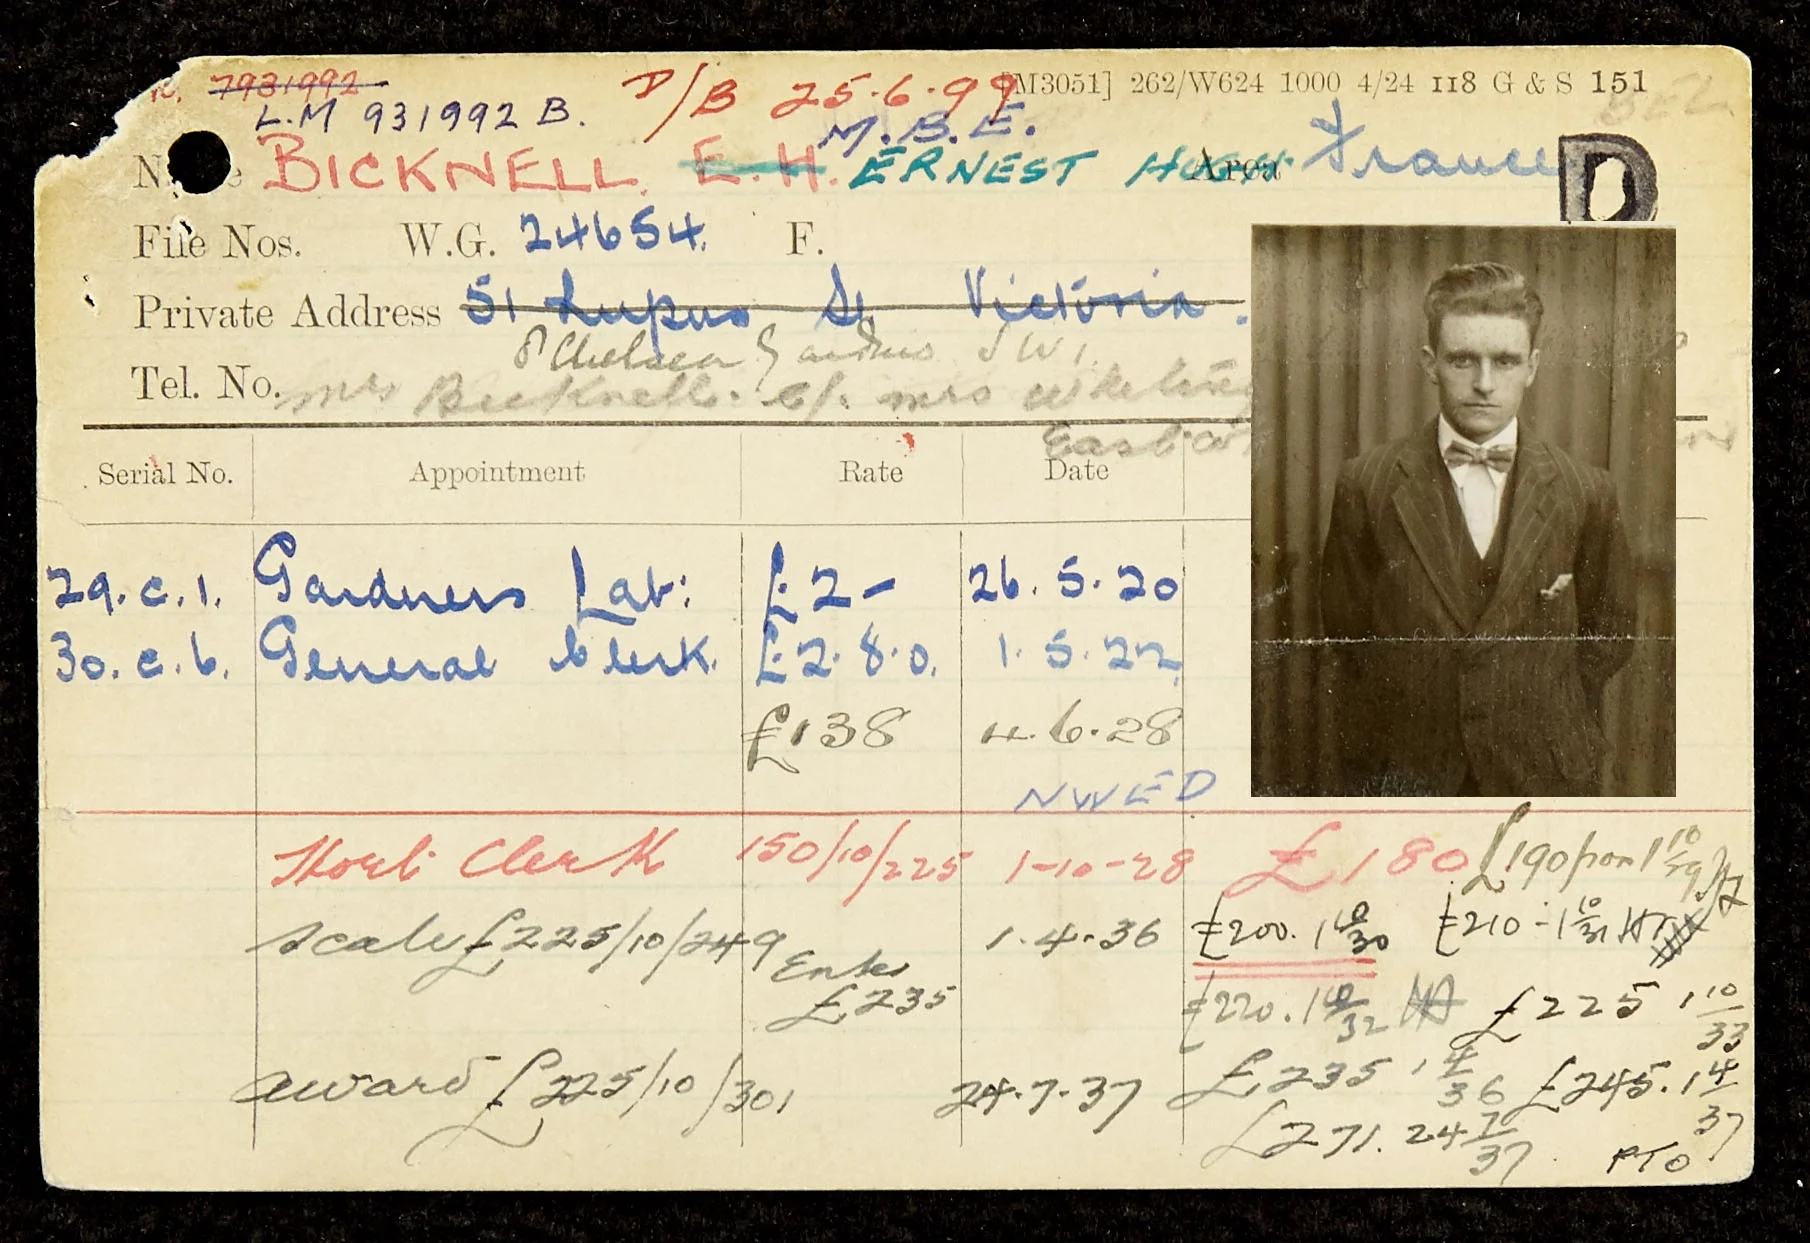 7931992 D/B 25.6.99 [M3051] 262/W624 1000 4/24 118 G & S 151
L.M 931992 B. M.B.E. BEL.
Name BICKNELL. E.H. ERNEST HUGH Area France D
File Nos. W.G. 24654. F.
Private Address 51 Lupus St Victoria.
8 Chelsea Gardens S W 1.
Tel. No. Mrs Bicknell. c/. Mrs
Serial No. Appointment Rate Date
29.c.1. Gardners Lab: £2- 26.5.20
30.c.6. General Clerk. £2.8.0. 1.5.22
£138 4.6.28
NWED
Horti Clerk 150/10/225 1-10-28 £180 £190 from 1 10/29
Scale £225/10/249 1.4.36 £200. 1 10/30 £210 - 1 10/31
Enter £235 £220. 1 10/32 £225 1 10/33
award £225/10/301 24.7.37 £235 1 4/36 £245. 1 4/37
£271. 24 7/37 PTO